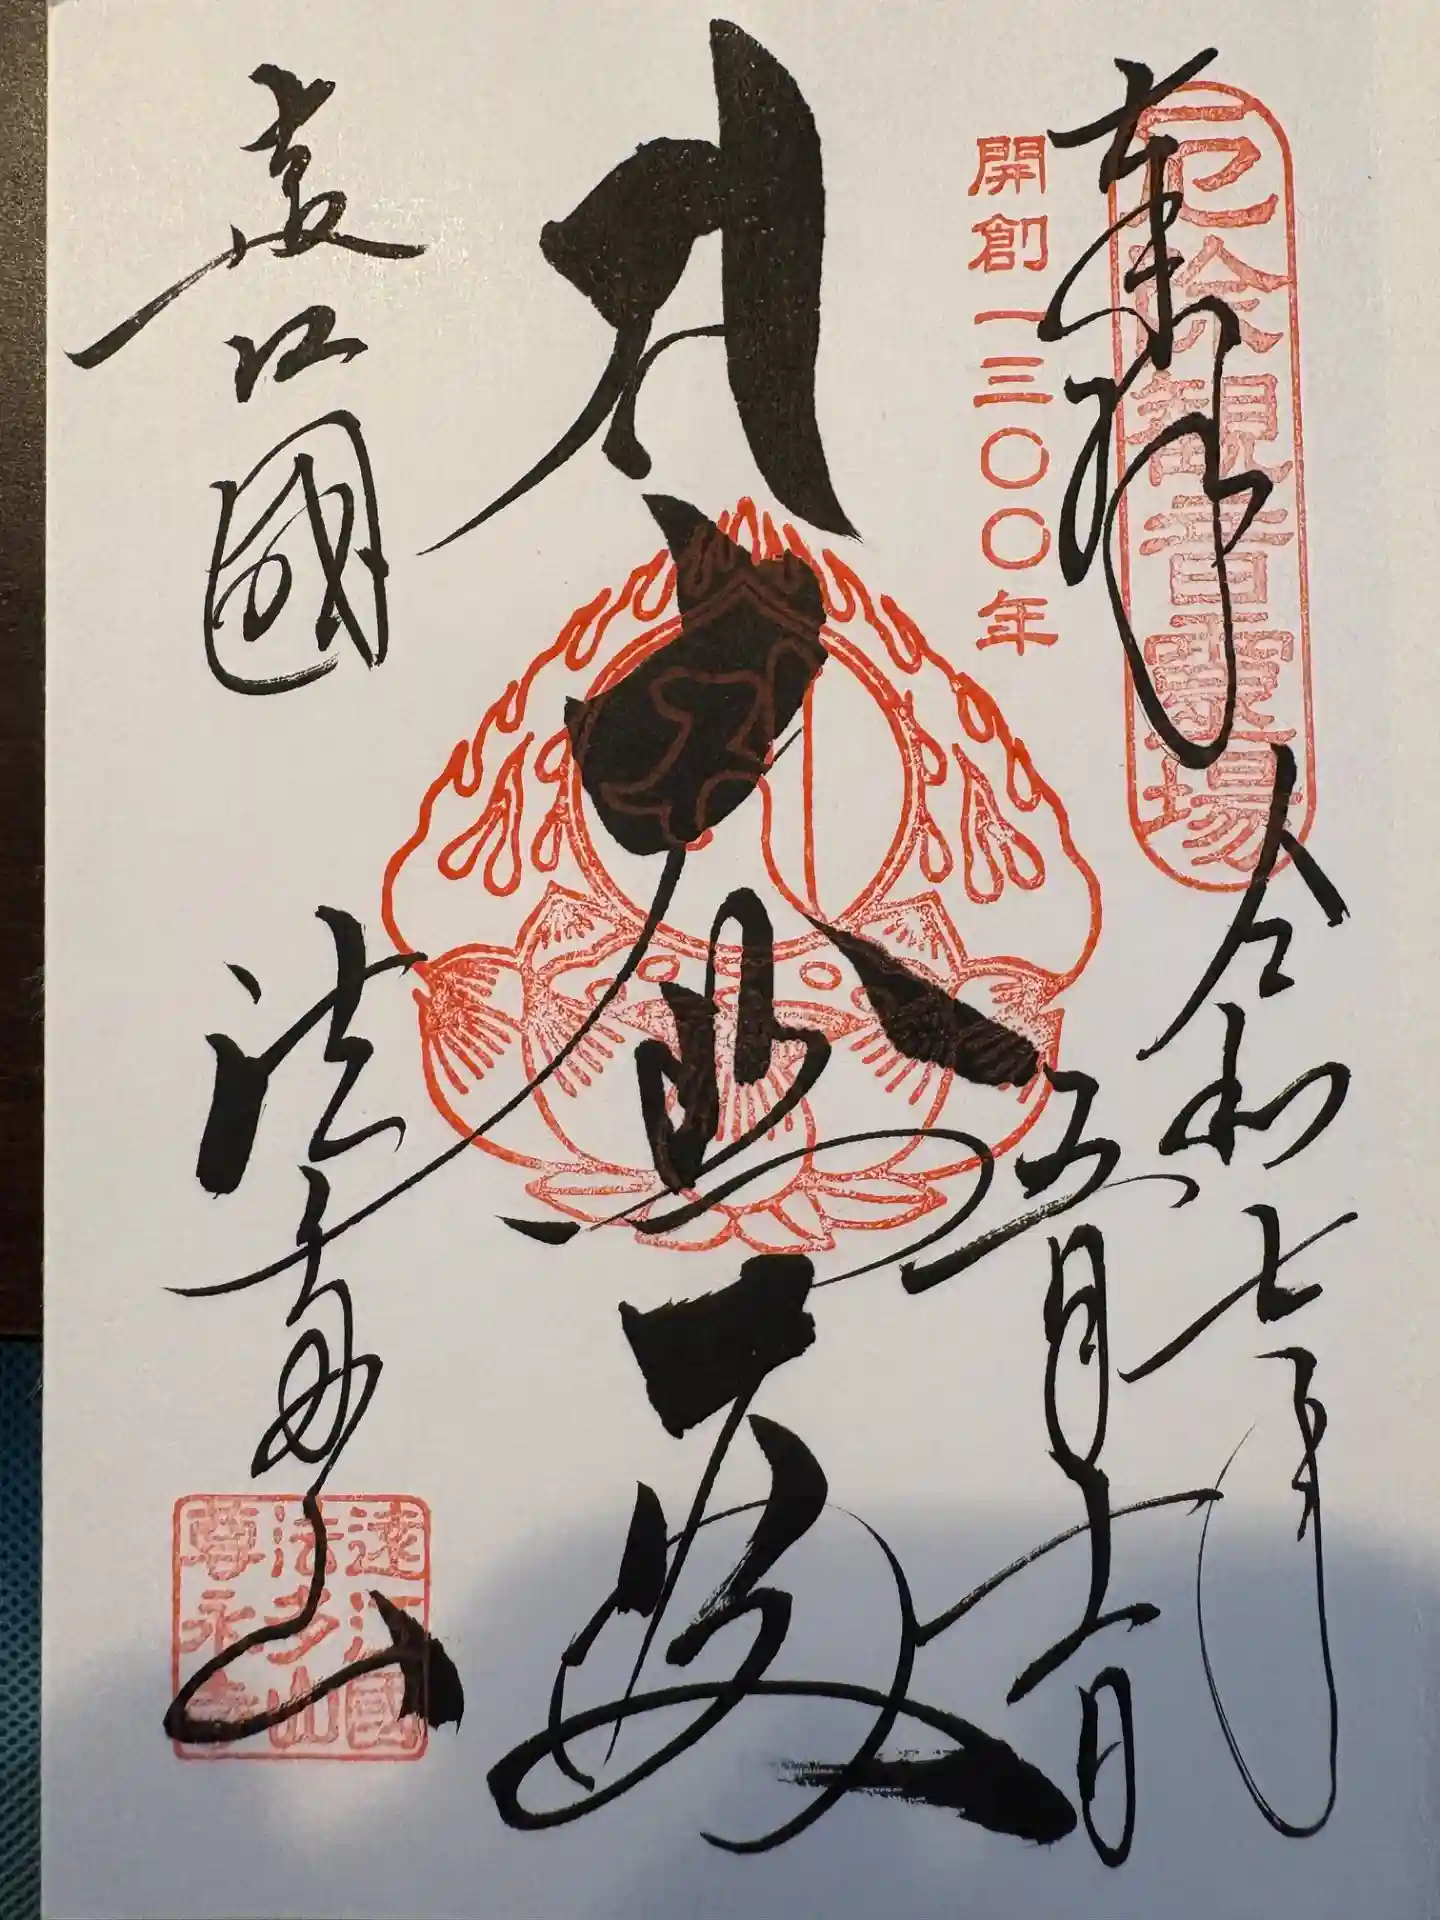 奉拝
厄除観音霊場
令和七年
五月
開創一三〇〇年
遠江國
法多山
遠江國
法多山
尊永寺